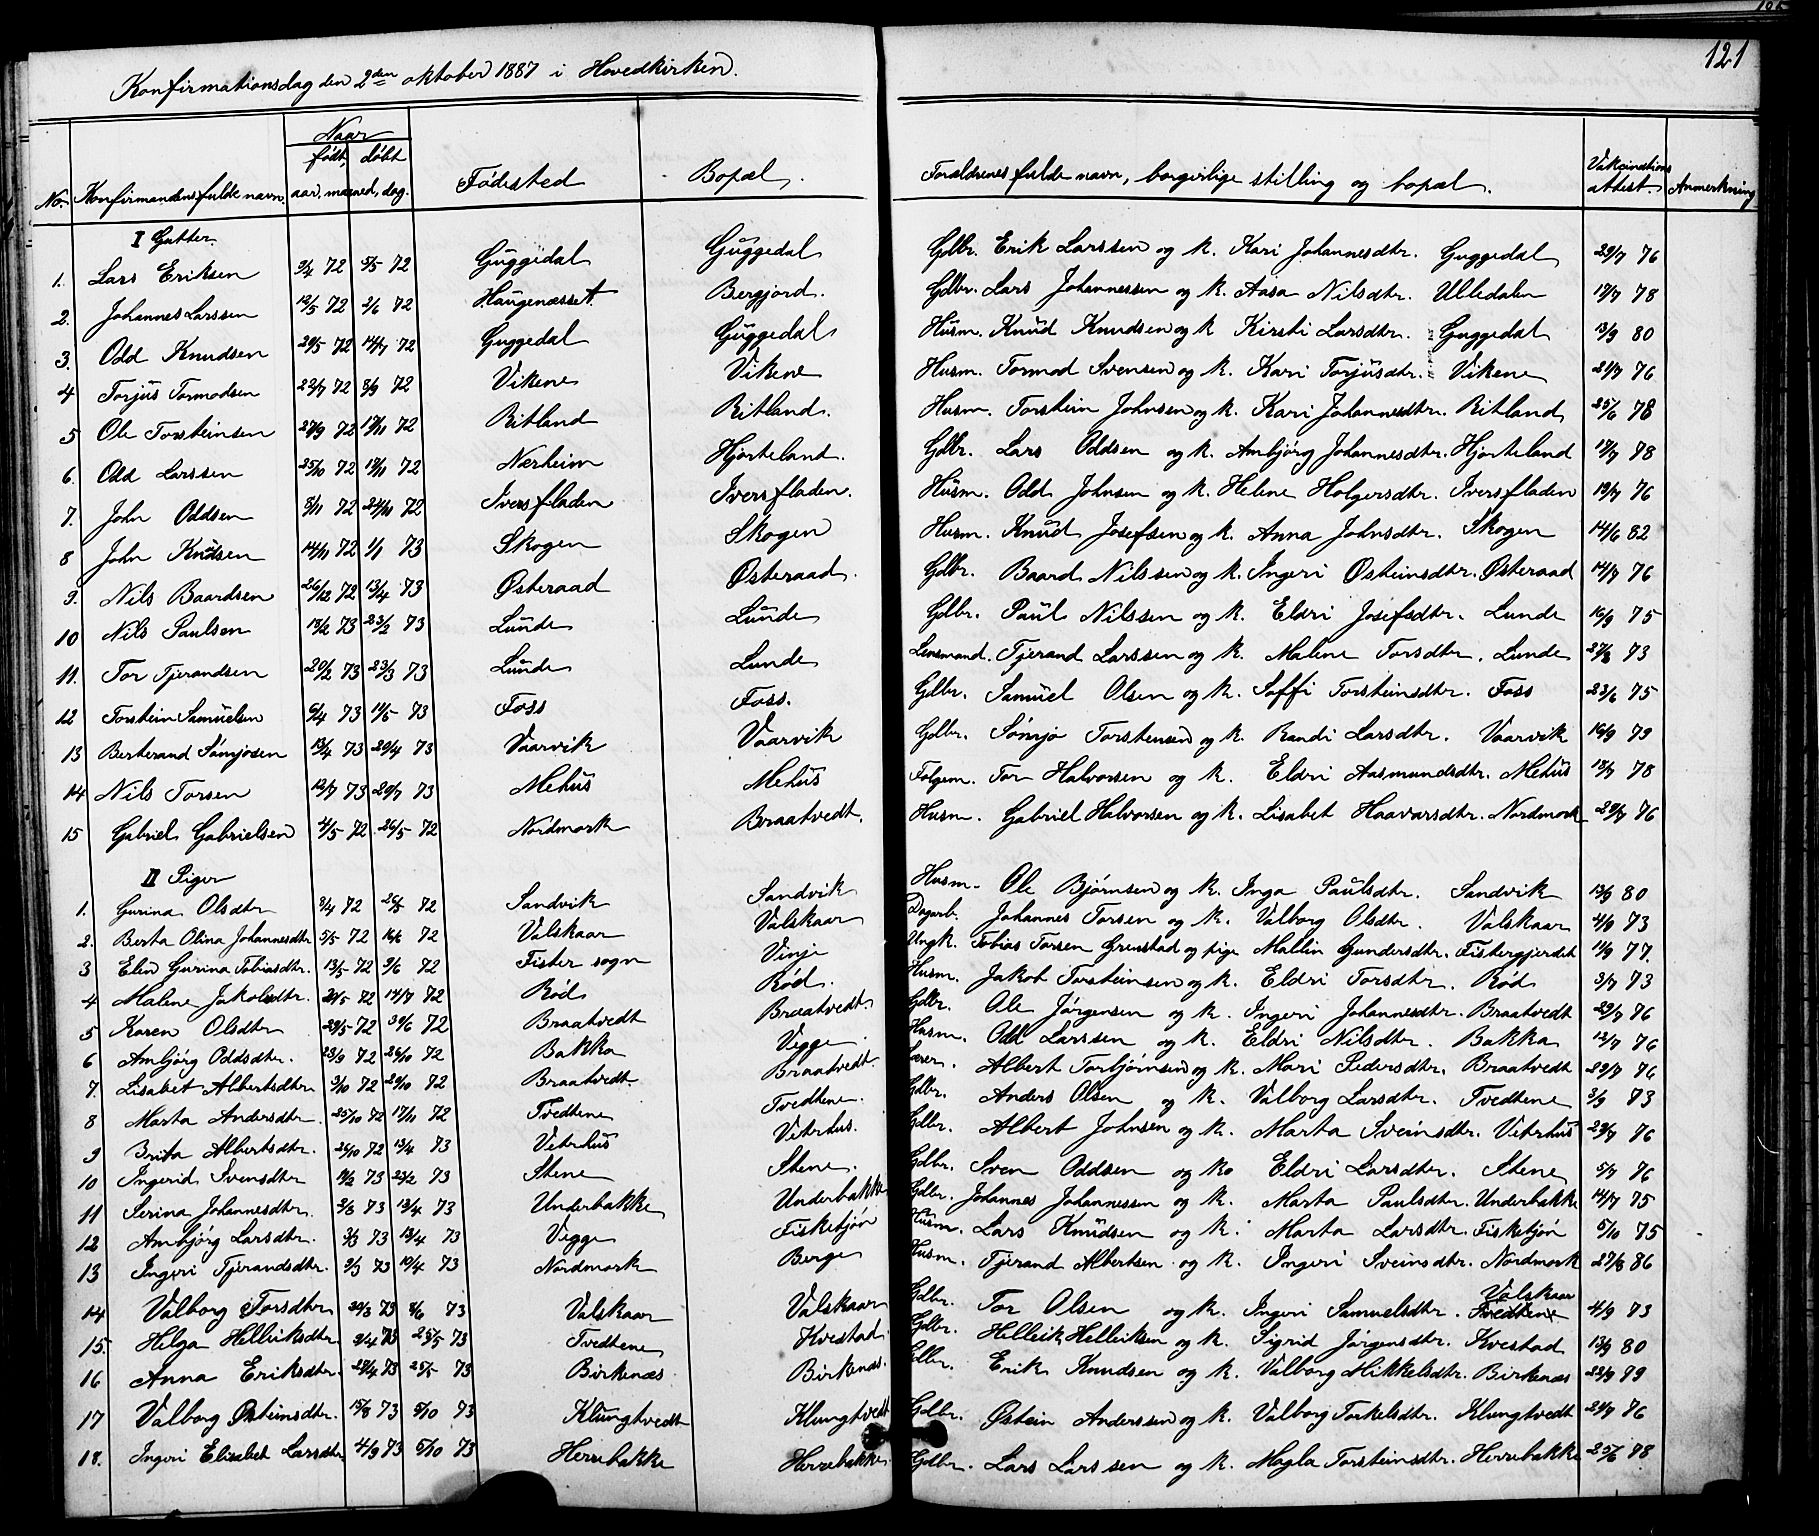 121
Konfirmationsdag den 2den oktober 1887 i Hovedkirken.
No. Konfirmandens fulde navn. Naar født, døbt aar, maaned, dag. Fødested Bopæl. Forældrenes fulde navn, borgerlige stilling og bopæl. Vakcinations attest. Anmerkning
I Gutter.
1. Lars Eriksen 9/4 72 9/5 72 Guggedal Guggedal Gdbr. Erik Larssen og k. Kari Johannesdtr. Guggedal 29/7 76
2. Johannes Larssen 12/5 72 2/6 72 Haugenæsset Bergjord. Gdbr. Lars Johannessen og k. Aasa Nilsdtr. Ulledalen 17/7 78
3. Odd Knudsen 29/5 72 14/7 72 Guggedal Guggedal Husm. Knud Knudsen og k Kirsti Larsdtr. Guggedal 13/9 80
4 Torjus Tormodsen 23/7 72 8/9 72 Vikene Vikene Husm. Tormod Svensen og k. Kari Torjusdtr. Vikene 21/7 76
5 Ole Torsteinsen 27/9 72 17/11 72 Ritland Ritland. Husm. Torstein Johnsen og k. Kari Johannesdtr. Ritland 25/6 78
6. Odd Larssen 25/10 72 18/11 72 Nærheim Hjorteland. Gdbr. Lars Oddsen og k. Ambjørg Johannesdtr. Hjorteland 17/7 78
7. John Oddsen 8/11 72 24/11 72 Iversfladen Iversfladen. Husm. Odd Johnsen og k. Helene Holgersdtr. Iversfladen 19/7 76
8 John Knudsen 14/11 72 1/1 73 Skogen Skogen Husm. Knud Josefsen og k. Anna Johnsdtr. Skogen 14/6 82
9. Nils Baardsen 26/12 72 13/4 73 Østeraad Østeraad. Gdbr. Baard Nilssen og k. Ingeri Østeinsdtr. Østeraad 14/7 76
10 Nils Paulsen 13/2 73 23/2 73 Lunde Lunde Gdbr. Paul Nilssen og k. Eldri Josefsdtr. Lunde 16/9 75
11. Tor Tjerandsen 20/2 73 23/3 73 Lunde Lunde Lensmand. Tjerand Larssen og k. Malene Torsdtr. Lunde 27/8 73
12 Torstein Samuelsen 6/4 73 11/5 73 Foss Foss. Gdbr. Samuel Olsen og k. Soffi Torsteinsdtr. Foss 23/6 75
13 Berterand Sømjosen 13/4 73 20/4 73 Vaarvik Vaarvik Gdbr. Sømjo Torstensen og k. Randi Larsdtr. Vaarvik 16/9 79
14 Nils Torsen 12/7 73 20/7 73 Mehus Mehus Folgem. Tor Halvorsen og k. Eldri Aasmundsdtr. Mehus 18/7 78
15 Gabriel Gabrielsen 4/5 72 26/5 72 Nordmork Braatvedt. Husm. Gabriel Halvorsen og k. Lisabet Haavarsdtr. Nordmork 29/7 76
II Piger
1. Gurina Olsdtr 8/4 72 72 Sandvik Sandvik Husm. Ole Bjørnsen og k. Inga Paulsdtr. Sandvik 13/9 80
2. Berta Olina Johannesdtr 5/5 72 16/6 72 Valskaar Valskaar Dagarb. Johannes Torsen og k. Valborg Olsdtr. Valskaar 4/9 73
3 Elen Gurina Tobiasdtr. 13/5 72 9/6 72 Fister sogn Vinje Ungk. Tobias Torsen Grenstad og pige Mallin Gundersdtr. Fistergjerdet 11/9 77.
4 Malene Jakobsdtr. 24/5 72 14/7 72 Rød Rød. Husm. Jakob Torsteinsen og k. Eldri Torsdtr. Rød 3/7 73
5 Karen Olsdtr 29/5 72 30/6 72 Braatvedt Braatvedt. Gdbr. Ole Jørgensen og k. Ingeri Johannesdtr. Braatvedt 29/7 76
6 Ambjørg Oddsdtr. 23/9 72 20/10 72 Bakka Vegge Husm. Odd Larssen og k. Eldri Nilsdtr. Bakka 12/7 76
7. Lisabet Albertsdtr 3/10 72 20/10 72 Braatvedt Braatvedt. Lærer. Albert Torbjørnsen og k. Mari Pedersdtr. Braatvedt 29/7 76
8 Marta Andersdtr. 25/10 72 17/11 72 Tvedtene Tvedtene. Gdbr. Anders Olsen og k. Valborg Larsdtr. Tvedtene 3/9 73
9 Brita Albertsdtr. 26/10 72 13/4 73 Veterhus Veterhus. Gdbr. Albert Johnsen og k. Marta Sveinsdtr. Veterhus 29/7 76
10 Ingerid Svensdtr 14/2 73 23/2 73 Stene Stene. Gdbr. Sven Oddsen og ko Eldri Larsdtr. Stene 5/7 76
11 Serina Johannesdtr. 3/3 73 13/4 73 Underbakke Underbakke Gdbr. Johannes Johannessen og k. Marta Paulsdtr. Underbakke 14/7 75
12 Ambjørg Larsdtr. 3/3 73 13/4 73 Vegge Fisketjøn Husm. Lars Knudsen og k. Marta Larsdtr. Fisketjøn 5/10 75
13 Ingeri Tjerandsdtr. 9/3 73 10/4 73 Nordmork Berge Husm. Tjerand Albertsen og k. Ingeri Sveinsdtr. Nordmork 27/8 86
14 Valborg Torsdtr 20/3 73 8/6 73 Valskaar Valskaar Gdbr. Tor Olsen og k. Ingeri Samuelsdtr. Valskaar Tvedtene 4/9 73
15. Helga Helleiksdtr. 9/4 73 25/5 73 Tvedtene Kvestad Gdbr. Helleik Helleiksen og k. Sigrid Jørgensdtr. Kvestad 13/9 80
16 Anna Eriksdtr. 28/4 73 25/5 73 Birkenæs Birkenæs. Gdbr. Erik Knudsen og k. Valborg Mikkelsdtr. Birkenæs 22/9 79
17 Valborg Østeinsdtr. 15/8 73 5/10 73 Klungtvedt Klungtvedt Gdbr. Østein Anderssen og k. Valborg Torkelsdtr. Klungtvedt 29/7 76
18. Ingeri Elisabet Larsdtr 4/9 73 5/10 73 Herrebakke Herrebakke. Gdbr. Lars Larssen og k. Magla Torsteinsdtr. Herrebakke 25/6 78